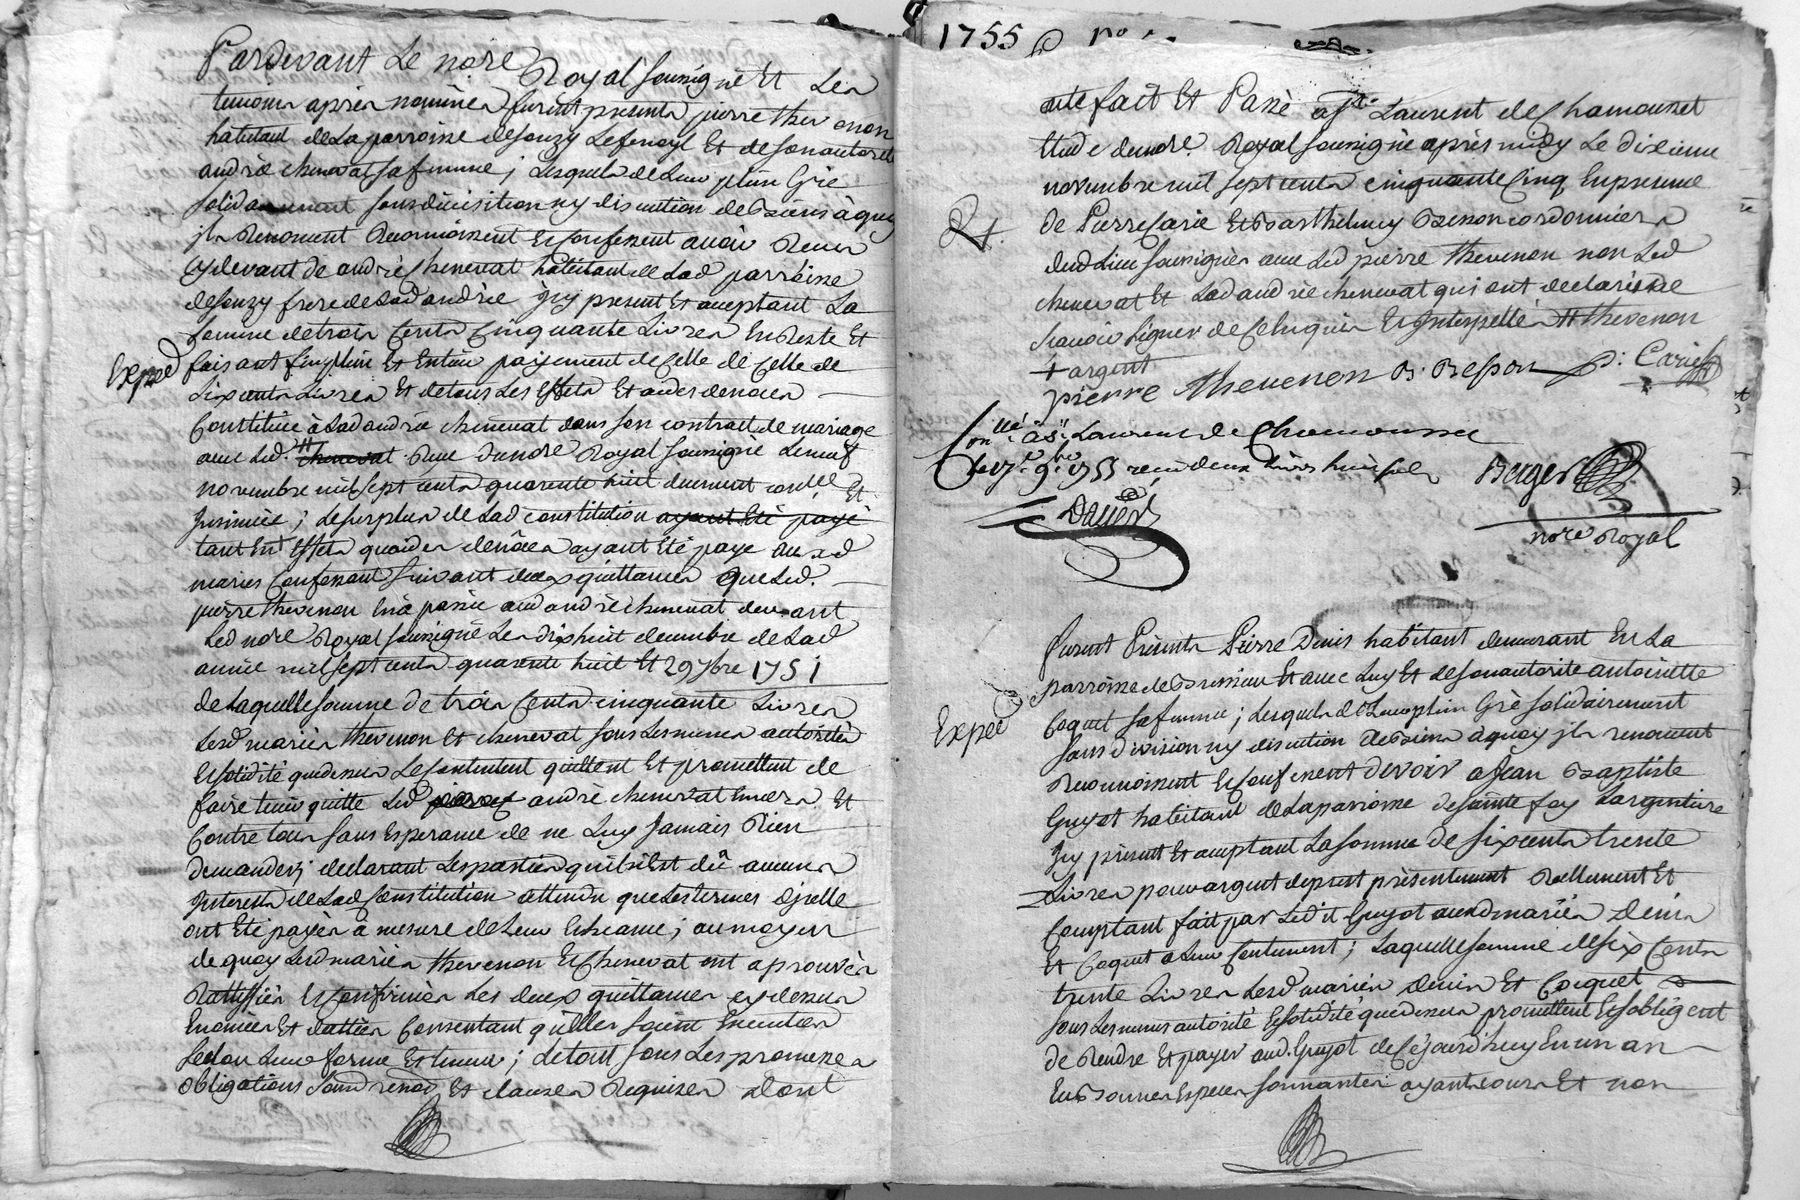 Pardevant Le nore Royal soussigné Et Les
temoins après nommés furent presents pierre thevenon
habitant de La parroisse de souzy Lefenoyl Et de son autorité
andrée chenevat sa femme ; Lesquels de Leur plein Gré
solidairement sans division ny discution de Biens à quoy
jls Renoncent Reconnoissent Et Confessent avoir Receu
cy devant de andré chenevat habitant de Lad parroisse
de souzy frere de Lad andrée jcy present Et aceptant La
somme de trois Cents Cinquante Livres En Reste Et
Exped
faisant L'emplein Et Entier payement de Celle de Celle de
six cents Livres Et de tous Les Effets Et
Constitué à Lad andrée chenevat dans son contrat de mariage
avec Led. # chenevat Receu Dunore Royal soussigné Le neuf
novembre mil sept cents quarente huit duement conllé Et
jnsinuée ; Le surplus de Lad constitution ayant Eté payé
tant En Effets ayant Eté payé auxd
mariés Confessant suivant deux quittances que Led.
pierre thevenon En à passée aud andré chenevat devant
Led nore Royal soussigné Les dixhuit decembre de Lad
année mil sept cents quarente huit Et 29 7bre 1751
de Laquelle somme de trois Cents cinquante Livres
Lesd mariés thevenon Et chenevat sous Les memes autorités
Et solidité que dessus Le Contentent quittent Et promettent de
faire tenir quitte Led andré chenevat Envers Et
Contre tous sans Esperance de ne Luy Jamais Rien
Demander ; declarant Les parties qu'il n'Est dû aucuns
Interests de Lad Constitution attendu que Les termes d'jcelle
ont Eté payés à mesure de Leur Echeance ; au moyen
de quoy Lesd mariés thevenon Et Chenevat ont aprouvés
Rattiffiés Et Confirmés Les deux quittances cy dessus
Enoncées Et dattées Consentant qu'Elles soient Executées
selon Leur forme Et teneur ; de tout sous Les promesses
obligations soumd renon Et clauses Requises Dont
1755
acte fait Et Passé à St. Laurent de Chamousset
Etude dunore. Royal soussigné après midy Le dixieme
novembre mil sept cents cinquante Cinq En presence
de Pierre Carie Et Barthelemy Besson cordonniers
dud Lieu soussignés avec Led pierre thevenon non Led
chenevat Et Lad andrée chenevat qui ont declarés ne
scavoir signer de Ce Enquis Et Interpellés # thevenon
+ argent
pierre thevenon B. Besson p: Carie
Conllé à St. Laurent de Chamousset
Le 17e. 9bre. 1755 receu deux Livres huit sols
Berger
nore Royal
furent Présents Pierre Denis habitant demeurant En La
parroisse de Brussieu Et avec Luy Et de son autorité antoinette
Exped
Coquet sa femme ; Lesquels de Leur plein Gré solidairement
sans division ny discution de Biens à quoy jls renoncent
Reconnoissent Et Confessent devoir a Jean Baptiste
Guyot habitant de La parroisse de sainte foy Largentiere
Icy présent Et aceptant La somme de six cents trente
Livres pour argent de prest présentement Réellement Et
Comptant fait par Led. Guyot auxd mariés Denis
Et Coquet à Leur Contentement ; Laquelle somme de six Cents
trente Livres Lesd mariés Denis Et Coquet
sous Les memes autorité Et solidité que dessus promettent Et s'obligent
de Rendre Et payer aud. Guyot de Cejourd'huy En un an
En Bonnes Especes sonnantes ayant cours Et non